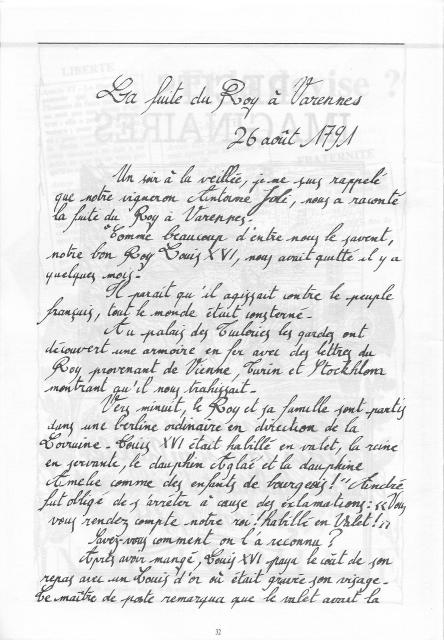 La fuite du Roy à Varennes
26 août 1791
Un soir à la veillée, je me suis rappelé
que notre vigneron Antoine Jolé, nous a raconté
la fuite du Roy à Varennes.
"Comme beaucoup d'entre nous le savent,
notre bon Roy Louis XVI, nous avait quitté il y a
quelques mois.
Il parait qu'il agissait contre le peuple
français, tout le monde était consterné.
Au palais des Tuileries les gardes ont
découvert une armoire en fer avec des lettres du
Roy provenant de Vienne, Turin et Stockholm
montrant qu'il nous trahissait.
Vers minuit, le Roy et sa famille sont partis
dans une berline ordinaire en direction de la
Lorraine. Louis XVI était habillé en valet, la reine
en servante, le dauphin Aglaé et la dauphine
Amélie comme des enfants de bourgeois!" André
fut obligé de s'arrêter à cause des exclamations: << Vous
vous rendez compte notre roi! habillé en Valet! >>
Savez-vous comment on l'a reconnu ?
Après avoir mangé, Louis XVI paya le coût de son
repas avec un Louis d'or où était gravée son visage.
Le maître de poste remarqua que le valet avait la
32
LIBERTE
IMAGINAIRES
FRATERNITE